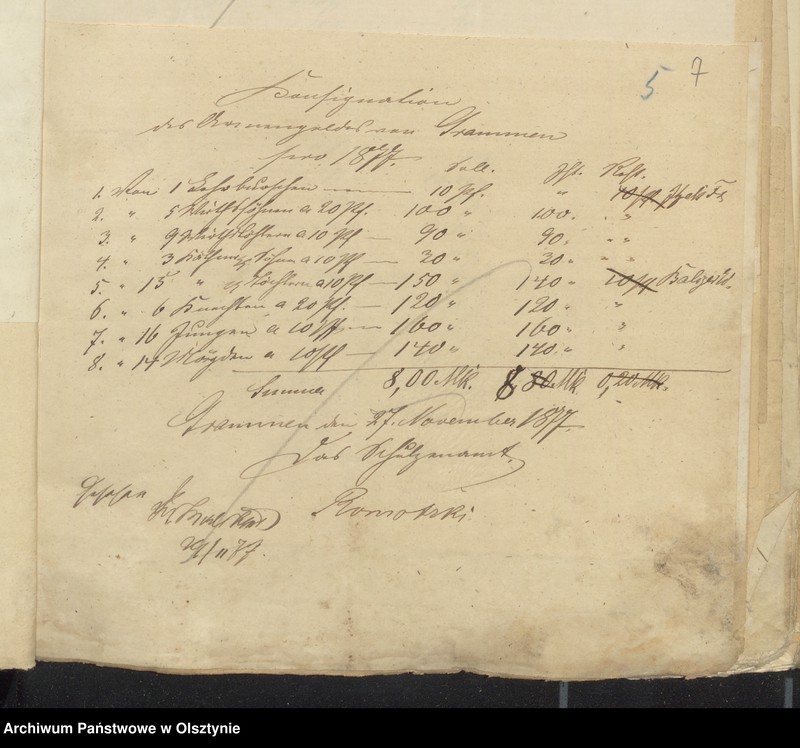 5 7
Consignation
des Armengeldes von Grammen
pro 1877.
Soll. Ist. Rest.
1. Von 1 Lehrburschen — 10 Pf. " 10 Pf
2. " 5 Wirthssöhnen a 20 Pf. 100 " 100. " "
3. " 9 Wirthstöchtern a 10 Pf — 90 " 90. " "
4. " 3 Söhnen a 10 Pf — 30 " 30. " "
5. " 15 " Töchtern a 10 Pf — 150 " 140 " 10 Pf
6. " 6 Knechten a 20 Pf. — 120 " 120 " "
7. " 16 Jungen a 10 Pf — 160 " 160 " "
8. " 14 Mägden a 10 Pf — 140 " 140 " "
Summa 8,00 Mk. 8, 80 Mk. 0,20 Mk.
Grammen den 27. November 1877.
Das Schulzenamt.
Gesehen
29/11 77.
Archiwum Państwowe w Olsztynie